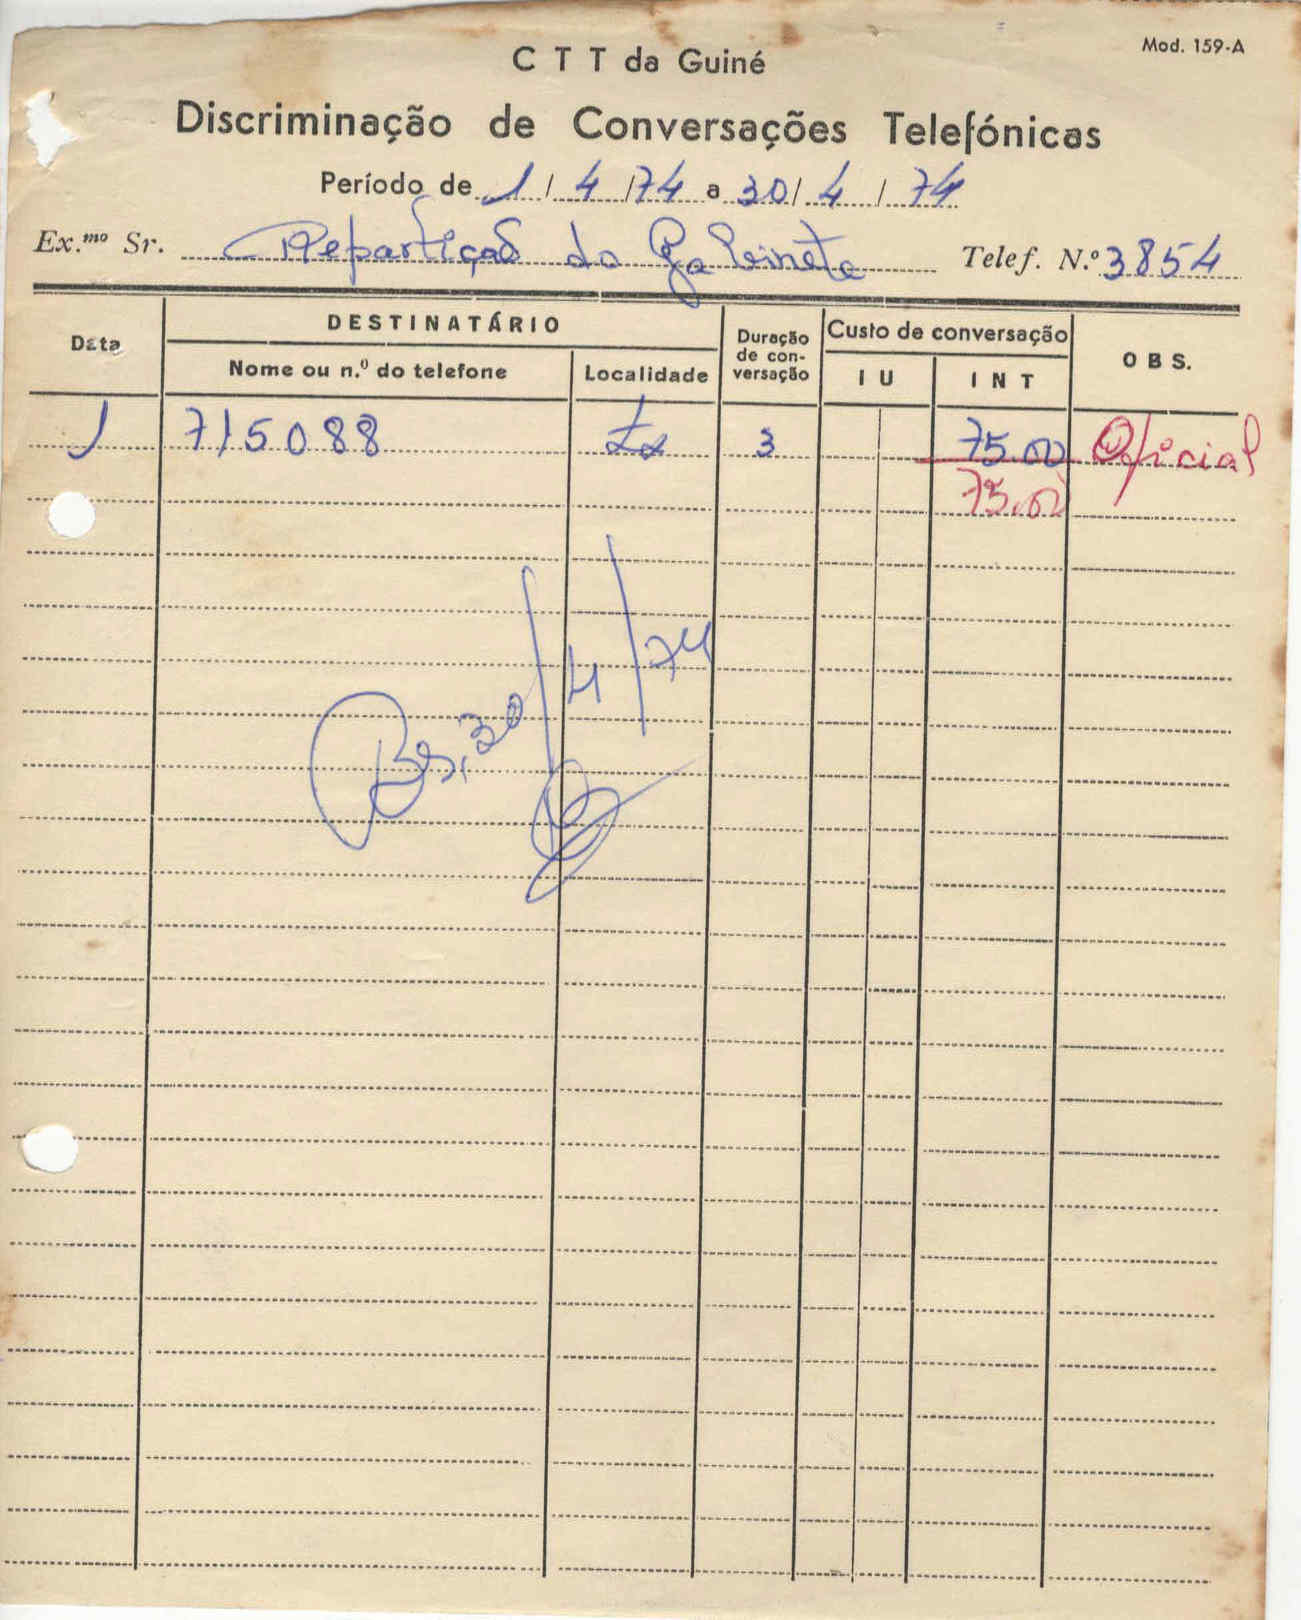 Mod. 159-A
C T T da Guiné
Discriminação de Conversações Telefónicas
Período de 1/4/74 a 30/4/74
Ex.mo Sr. Repartição do Gabinete Telef. N.º 3854
Data DESTINATÁRIO Duração de con-versação Custo de conversação OBS.
Nome ou n.º do telefone Localidade I U I N T
1 715088 Lx 3 75.00 Oficial
75.00
Bs, 30/4/74